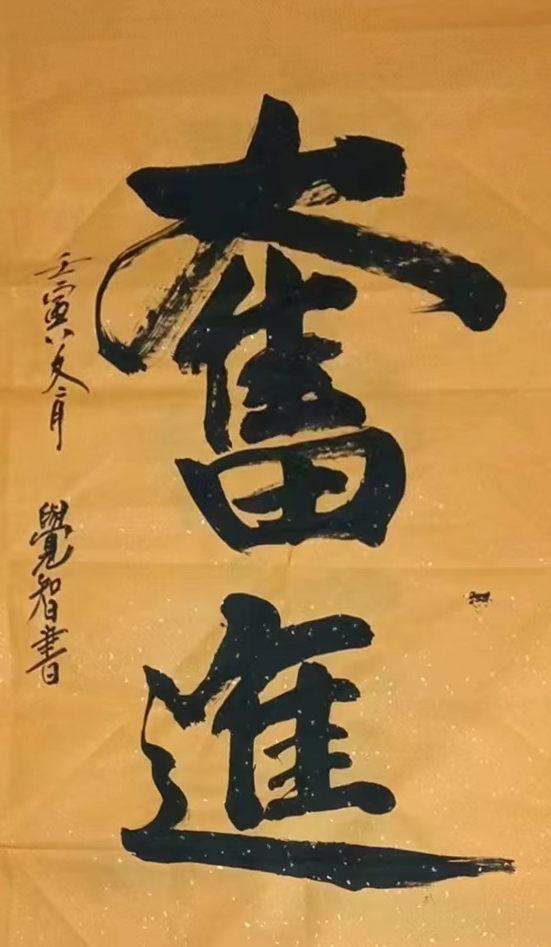 奮進
壬寅年二月
覺智書